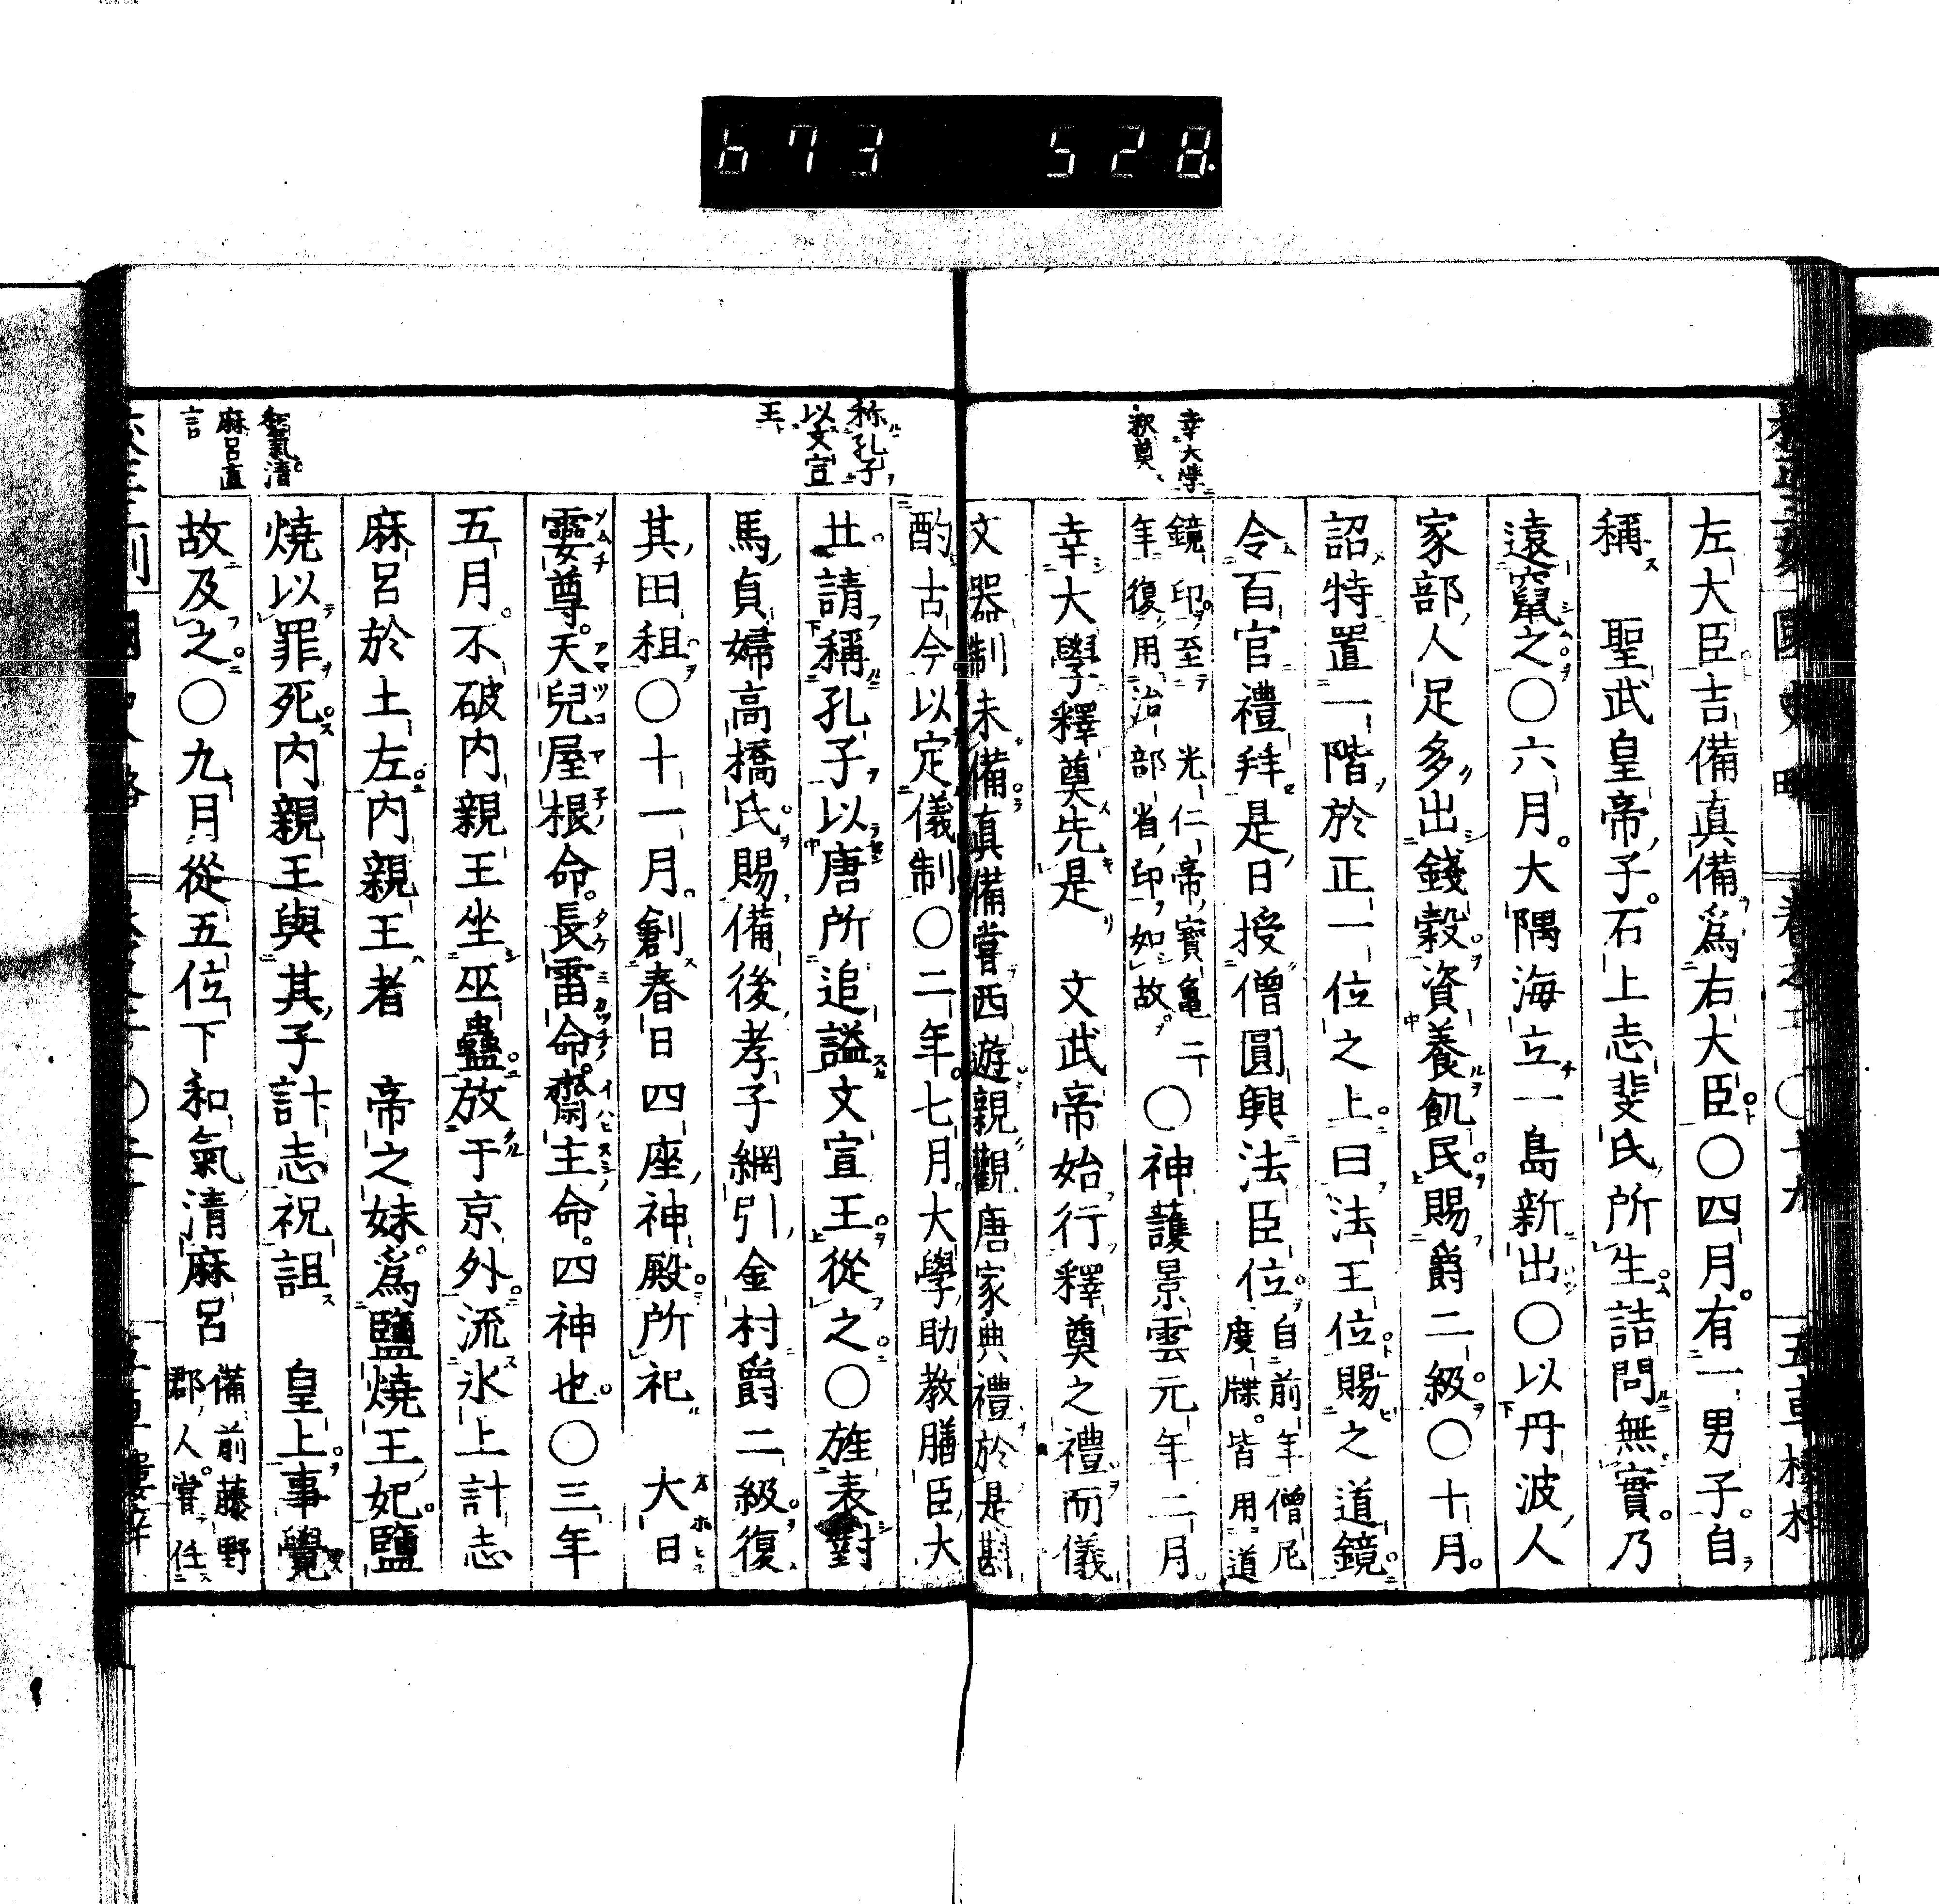 673 528
左大臣吉備真備爲右大臣○四月有一男子自
稱 聖武皇帝子石上志斐氏所生詰問無實乃
遠竄之○六月大隅海立一島新出○以丹波人
家部人足多出錢穀資養飢民賜爵二級○十月
詔特置一階於正一位之上曰法王位賜之道鏡
令百官禮拜是日授僧圓興法臣位
自前年僧尼
度牒皆用道
幸大學
釈奠
鏡印至 光仁帝寶亀二
年復用治部省印如故
○神護景雲元年二月
幸大學釋奠先是 文武帝始行釋奠之禮而儀
文器制未備真備嘗西遊親觀唐家典禮於是斟
酌古今以定儀制○二年七月大學助教膳臣大
称孔子
以文宣
王
丘請稱孔子以唐所追謚文宣王從之○旌表對
馬貞婦高橋氏賜備後孝子網引金村爵二級復
其田租○十一月創春日四座神殿所祀 大日
孁尊天兒屋根命長雷命齋主命四神也○三年
五月不破内親王坐巫蠱放于京外流氷上計志
麻呂於土左内親王者 帝之妹爲鹽燒王妃鹽
燒以罪死内親王與其子計志祝詛 皇上事覺
和氣清
麻呂直
言
故及之○九月從五位下和氣清麻呂
備前藤野
郡人嘗任